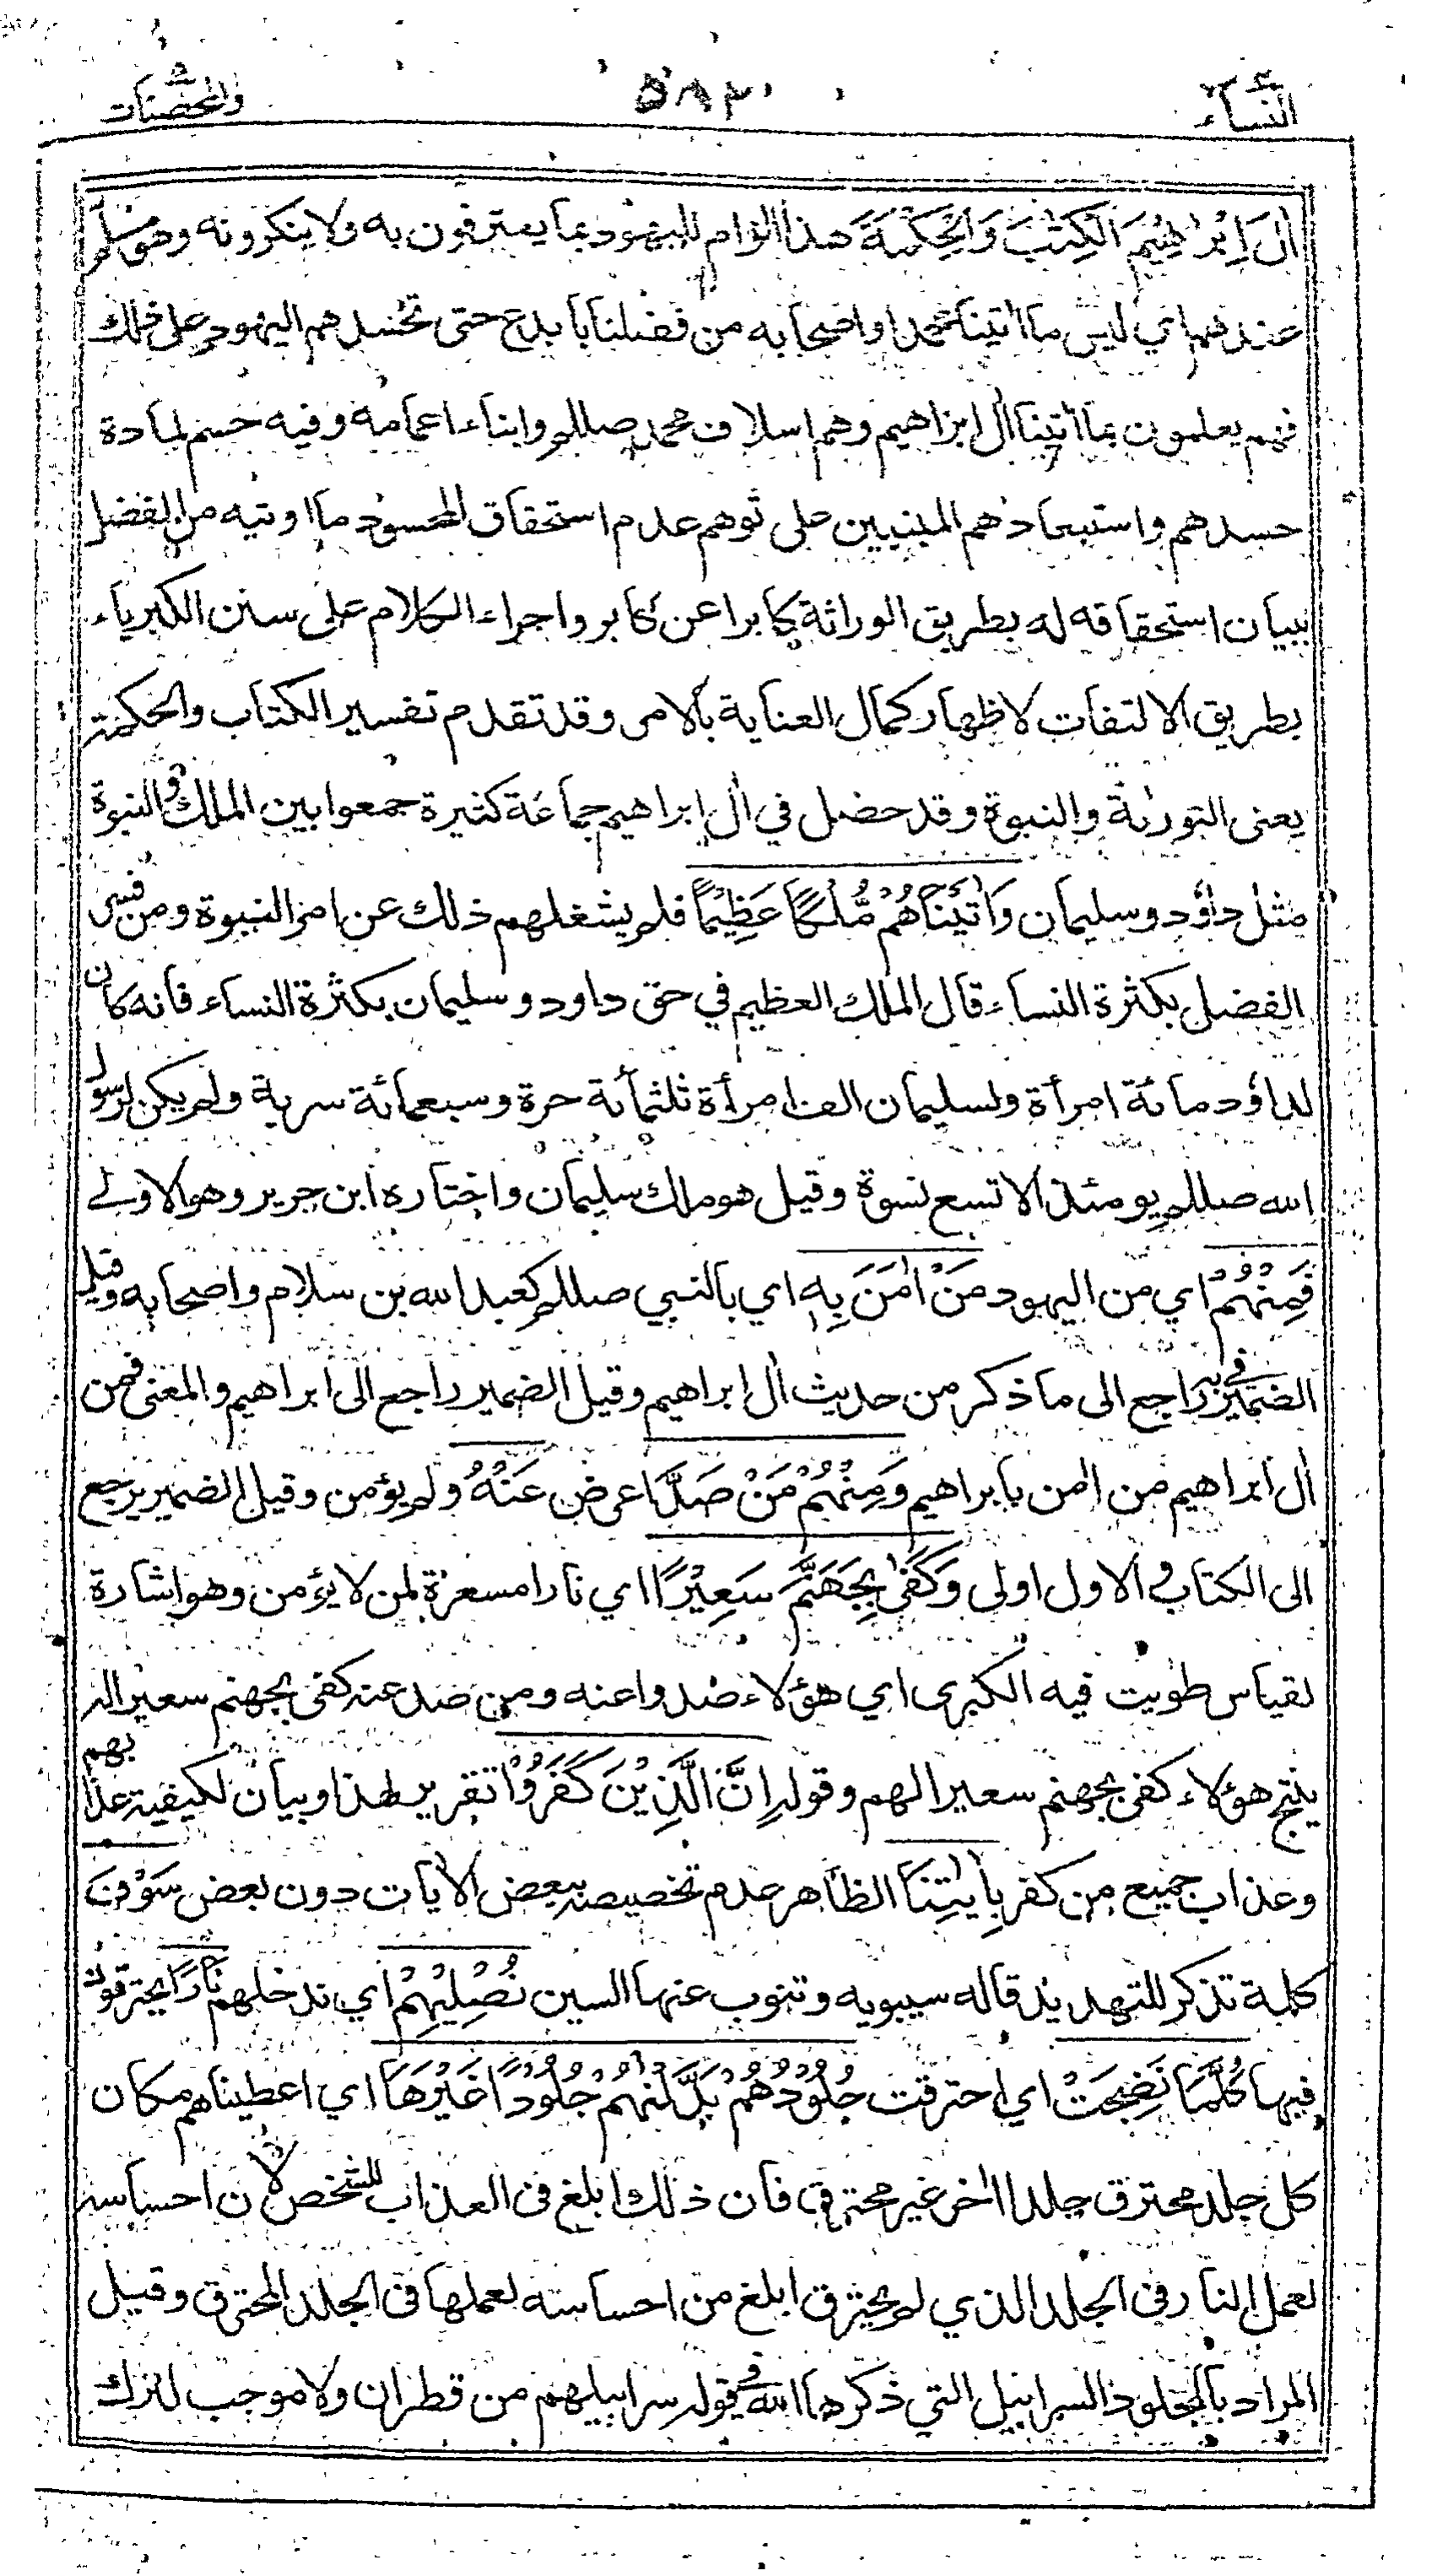 النساء ٥٨٢ والمحصنات
اٰلَ اِبْرٰهِيْمَ الْكِتٰبَ وَالْحِكْمَةَ هذا الزام لليهود بما يعترفون به ولا ينكرونه وهو مسلم
عندهم اي ليس ما اٰتينا محمدا واصحابه من فضلنا بابدع حتى تحسدهم اليهود على ذلك
فهم يعلمون بما اٰتينا اٰل ابراهيم وهم اسلاف محمد صللم وابناء اعمامه وفيه حسم لمادة
حسدهم واستبعادهم المبنيين على توهم عدم استحقاق المحسود ما اوتيه من الفضل
ببيان استحقاقه له بطريق الوراثة كابرا عن كابر واجراء الكلام على سنن الكبرياء
بطريق الالتفات لاظهار كمال العناية بالامر وقد تقدم تفسير الكتاب والحكمة
يعنى التورٰىة والنبوة وقد حصل في اٰل ابراهيم جماعة كثيرة جمعوا بين الملك والنبوة
مثل داؤد وسليمان وَاٰتَيْنَاهُمْ مُّلْكًا عَظِيْمًا فلم يشغلهم ذلك عن امر النبوة ومن فسر
الفضل بكثرة النساء قال الملك العظيم في حق داود وسليمان بكثرة النساء فانه كان
لداؤد مائة امرأة ولسليمان الف امرأة ثلثمائة حرة وسبعمائة سرية ولم يكن لرسول
الله صللم يومئذ الا تسع نسوة وقيل هو ملك سليمان واختاره ابن جرير وهو الاولى
فَمِنْهُمْ اي من اليهود مَنْ اٰمَنَ بِهٖ اي بالنبي صللم كعبد الله بن سلام واصحابه وقيل
الضمير في به راجع الى ما ذكر من حديث اٰل ابراهيم وقيل الضمير راجع الى ابراهيم والمعنى فمن
اٰل ابراهيم من اٰمن بابراهيم وَمِنْهُمْ مَنْ صَدَّ اعرض عَنْهُ ولم يؤمن وقيل الضمير يرجع
الى الكتاب والاول اولى وَكَفٰى بِجَهَنَّمَ سَعِيْرًا اي نارا مسعرة لمن لا يؤمن وهو اشارة
لقياس طويت فيه الكبرى اي هؤلاء صدوا عنه ومن صد عنه كفى بجهنم سعيرا له
ينتج هؤلاء كفى بجهنم سعيرا لهم وقوله اِنَّ الَّذِيْنَ كَفَرُوْا تقرير لهذا وبيان لكيفية عذابهم
وعذاب جميع من كفر بِاٰيٰتِنَا الظاهر عدم تخصيصه ببعض الاٰيات دون بعض سَوْفَ
كلمة تذكر للتهديد قاله سيبويه وتنوب عنها السين نُصْلِيْهِمْ اي ندخلهم نَارًا يحترقون
فيها كُلَّمَا نَضِجَتْ اي احترقت جُلُوْدُهُمْ بَدَّلْنٰهُمْ جُلُوْدًا غَيْرَهَا اي اعطيناهم مكان
كل جلد محترق جلدا اٰخر غير محترق فان ذلك ابلغ فى العذاب للشخص لان احساسه
لعمل النار فى الجلد الذي لم يحترق ابلغ من احساسه لعملها فى الجلد المحترق وقيل
المراد بالجلود السرابيل التي ذكرها الله في قوله سرابيلهم من قطران ولا موجب لترك